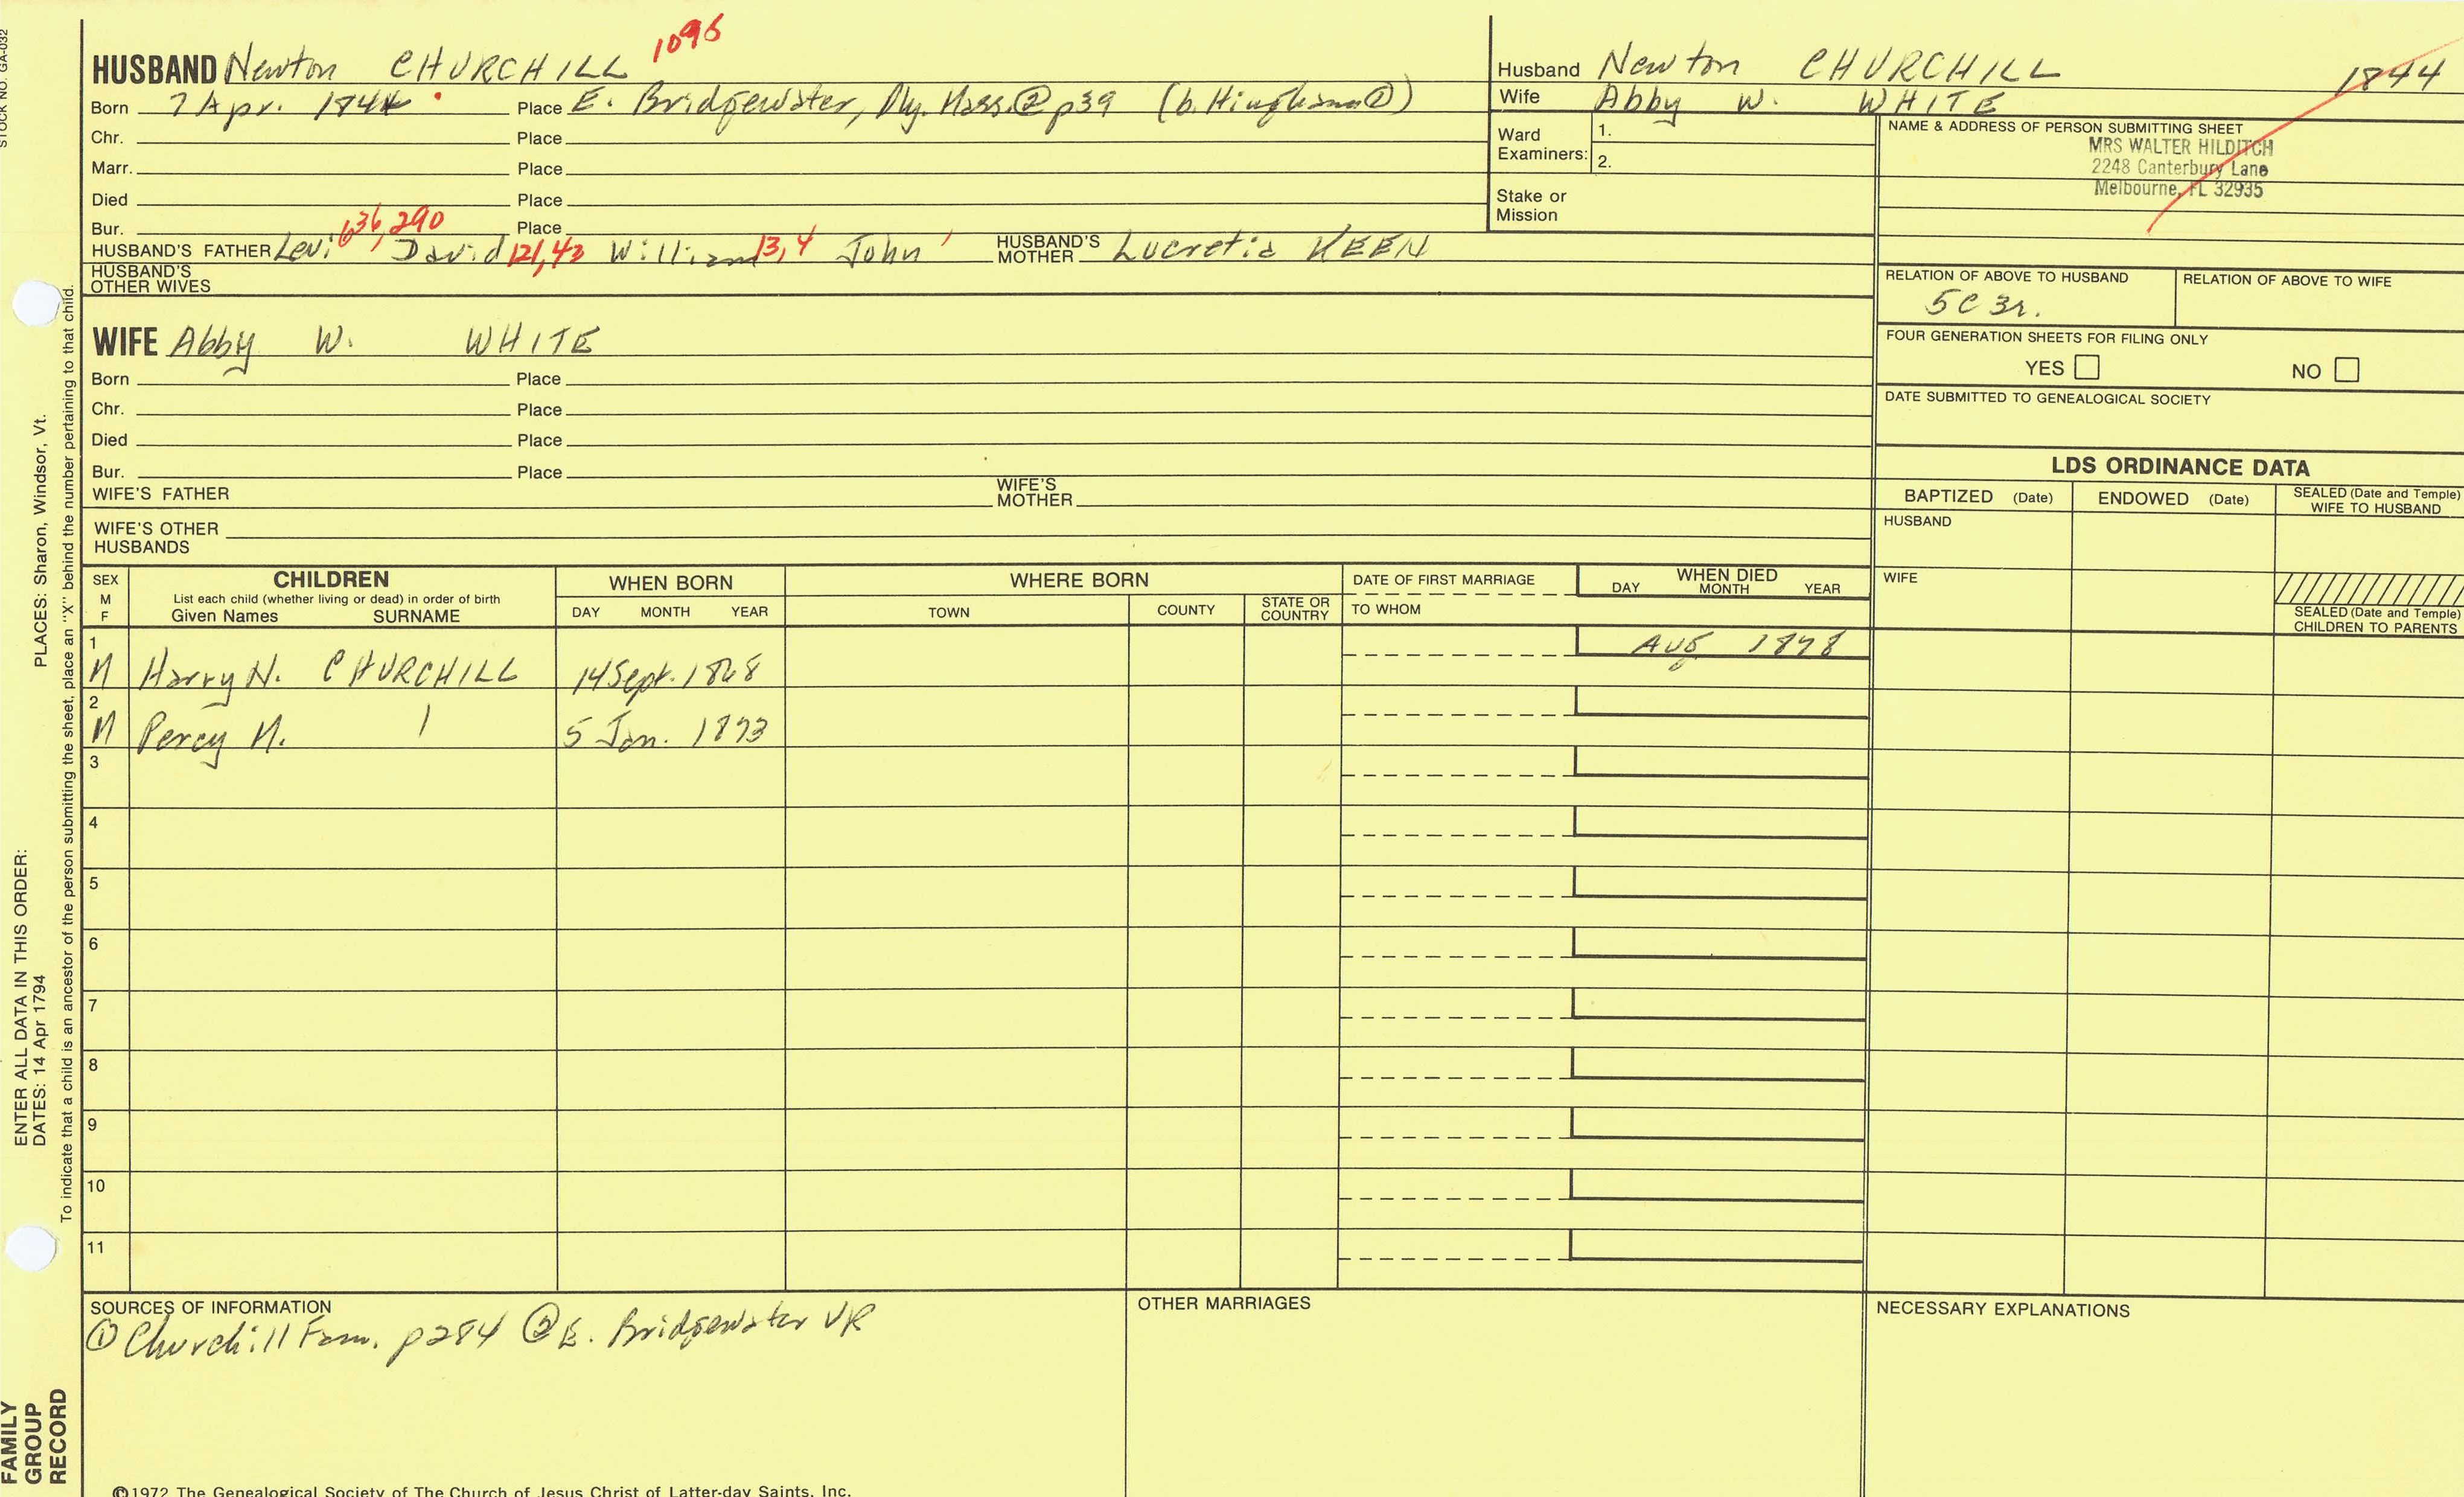 STOCK NO. GA-032
PLACES: Sharon, Windsor, Vt.
ENTER ALL DATA IN THIS ORDER:
DATES: 14 Apr 1794
To indicate that a child is an ancestor of the person submitting the sheet, place an "X" behind the number pertaining to that child.
FAMILY
GROUP
RECORD
HUSBAND Newton CHURCHILL 1096
Born 7 Apr. 1844 Place E. Bridgewater, Ply. Mass.② p39 (b. Hingham①)
Chr. Place
Marr. Place
Died Place
Bur. Place
HUSBAND'S FATHER Levi 636, 290 David 121, 43 William 13, 4 John ' HUSBAND'S MOTHER Lucretia KEEN
HUSBAND'S OTHER WIVES
Husband Newton CHURCHILL 1844
Wife Abby W. WHITE
Ward Examiners: 1.
2.
Stake or Mission
NAME & ADDRESS OF PERSON SUBMITTING SHEET
MRS WALTER HILDITCH
2248 Canterbury Lane
Melbourne, FL 32935
RELATION OF ABOVE TO HUSBAND RELATION OF ABOVE TO WIFE
5C 3r.
FOUR GENERATION SHEETS FOR FILING ONLY
YES NO
DATE SUBMITTED TO GENEALOGICAL SOCIETY
WIFE Abby W. WHITE
Born Place
Chr. Place
Died Place
Bur. Place
WIFE'S FATHER WIFE'S MOTHER
WIFE'S OTHER HUSBANDS
LDS ORDINANCE DATA
BAPTIZED (Date) ENDOWED (Date) SEALED (Date and Temple) WIFE TO HUSBAND
HUSBAND
WIFE
SEALED (Date and Temple) CHILDREN TO PARENTS
SEX M F
CHILDREN
List each child (whether living or dead) in order of birth
Given Names SURNAME
WHEN BORN
DAY MONTH YEAR
WHERE BORN
TOWN COUNTY STATE OR COUNTRY
DATE OF FIRST MARRIAGE
TO WHOM
WHEN DIED
DAY MONTH YEAR
1 M Harry N. CHURCHILL 14 Sept. 1868 Aug 1898
2 M Percy M. | 5 Jan. 1873
3
4
5
6
7
8
9
10
11
SOURCES OF INFORMATION
① Churchill Fam. p284 ② E. Bridgewater VR
OTHER MARRIAGES
NECESSARY EXPLANATIONS
©1972 The Genealogical Society of The Church of Jesus Christ of Latter-day Saints, Inc.